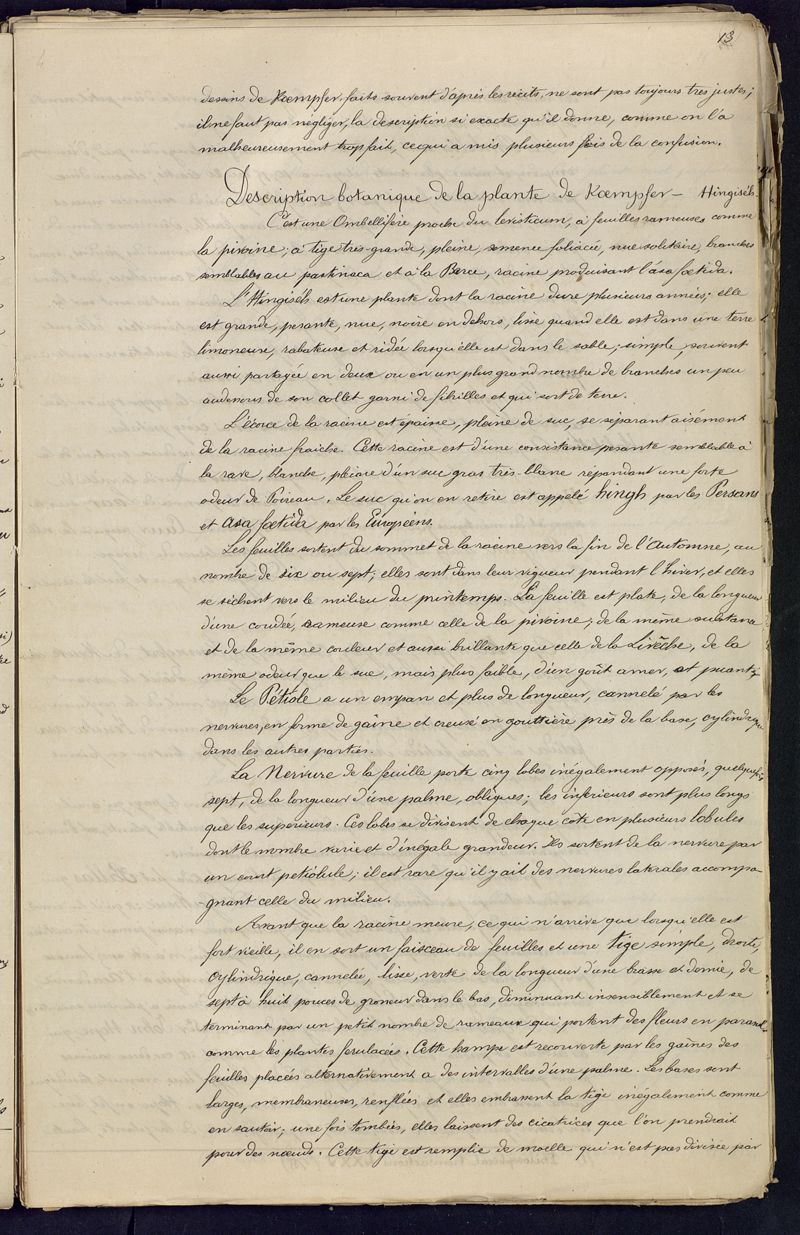 13
dessins de Kœmpfer, faits souvent d'après les récits, ne sont pas toujours très justes;
il ne faut pas négliger, la description si exacte qu'il donne, comme on l'a
malheureusement trop fait, ce qui a mis plusieurs fois de la confusion.
Description botanique de la plante de Kœmpfer — Hingiséh.
C'est une Ombellifère proche du levisticum, à feuilles rameuses comme
la pivoine; à tige très-grande, pleine, semence foliacée, nue solitaire, branches
semblables au pastinaca et à la Berce, racine produisant l'asa fœtida.
L'Hingiséh est une plante dont la racine dure plusieurs années; elle
est grande, pesante, nue, noire en dehors, lisse quand elle est dans une terre
limoneuse, rabateuse et ridée lorsqu'elle est dans le sable; simple, souvent
aussi partagée en deux ou en un plus grand nombre de branches un peu
audessous de son collet garni de fibrilles et qui sort de terre.
L'écorce de la racine est épaisse, pleine de suc, se séparant aisément
de la racine fraîche. Cette racine est d'une consistance pesante semblable à
la rave, blanche, pleine d'un suc gras très-blanc répandant une forte
odeur de Poireau. Le suc qu'on en retire est appelé hingh par les Persans
et asa fœtida par les Européens.
Les feuilles sortent du sommet de la racine vers la fin de l'Automne, au
nombre de six ou sept; elles sont dans leur vigueur pendant l'hiver, et elles
se sèchent vers le milieu du printemps. La feuille est plate, de la longueur
d'une coudée, rameuse comme celle de la pivoine; de la même substance
et de la même couleur et aussi brillante que celle de la Livêche, de la
même odeur que le suc, mais plus faible, d'un goût amer, et puant.
Le Pétiole a un empan et plus de longueur, cannelé par les
nervures, en forme de gaîne et creusé en gouttière près de la base, cylindrique
dans les autres parties.
La Nervure de la feuille porte cinq lobes inégalement opposés, quelquefois
sept, de la longueur d'une palme, obliques; les inférieurs sont plus longs
que les supérieurs. Ces lobes se divisent de chaque côté en plusieurs lobules
dont le nombre varie et d'inégale grandeur. Ils sortent de la nervure par
un court pétiolule; il est rare qu'il y ait des nervures latérales accompa-
gnant celle du milieu.
Avant que la racine meure, ce qui n'arrive que lorsqu'elle est
fort vieille, il en sort un faisceau de feuilles et une tige simple, droite,
cylindrique, cannelée, lisse, verte de la longueur d'une brasse et demie, de
sept à huit pouces de grosseur dans le bas, diminuant insensiblement et se
terminant par un petit nombre de rameaux qui portent des fleurs en parasol
comme les plantes férulacées. Cette hampe est recouverte par les gaînes des
feuilles placées alternativement à des intervalles d'une palme. Les bases sont
larges, membraneuses, renflées et elles embrassent la tige inégalement comme
en sautoir; une fois tombées, elles laissent des cicatrices que l'on prendrait
pour des nœuds. Cette tige est remplie de moelle qui n'est pas divisée par